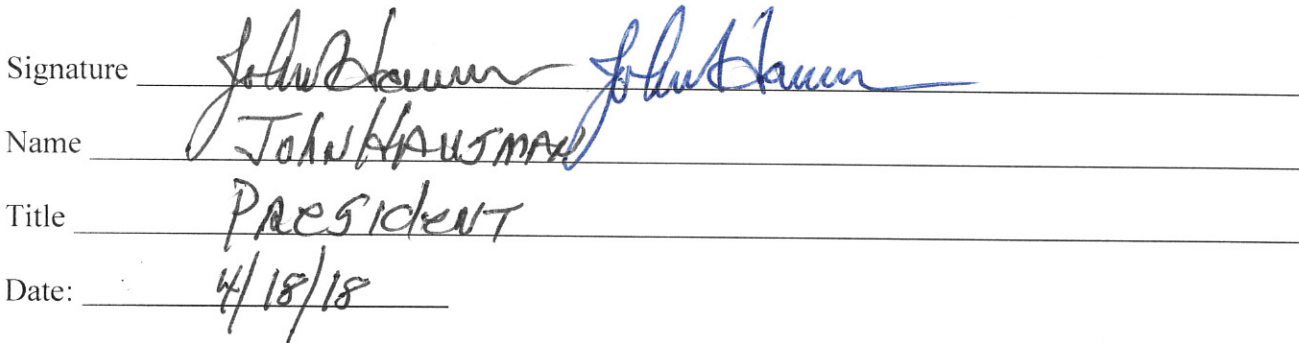 Signature John Hausman John Hausman
Name JOHN HAUSMAN
Title PRESIDENT
Date: 4/18/18